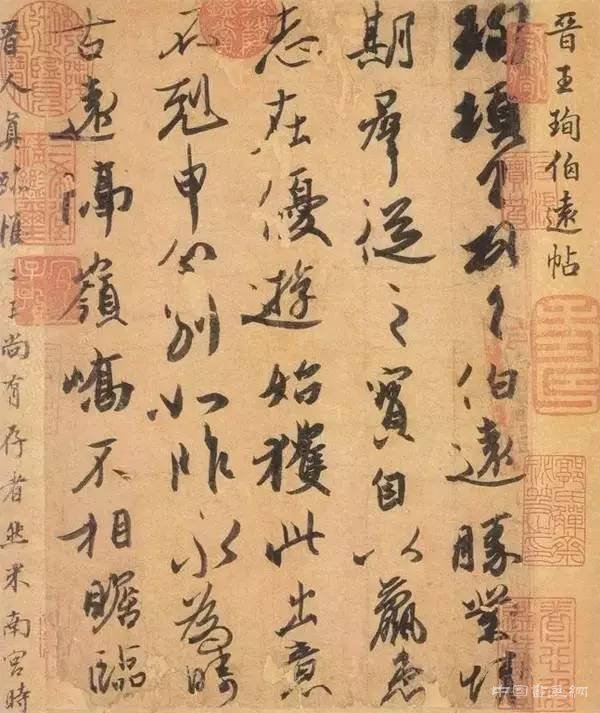 晋王珣伯遠帖
珣頓首頓首伯遠勝業情
期群從之寶自以羸患
志在優遊始獲此出意
不剋申分别如昨永為疇
古遠隔嶺嶠不相瞻臨
晋人真跡惟二王尚有存者然米南宮時
中国書画網